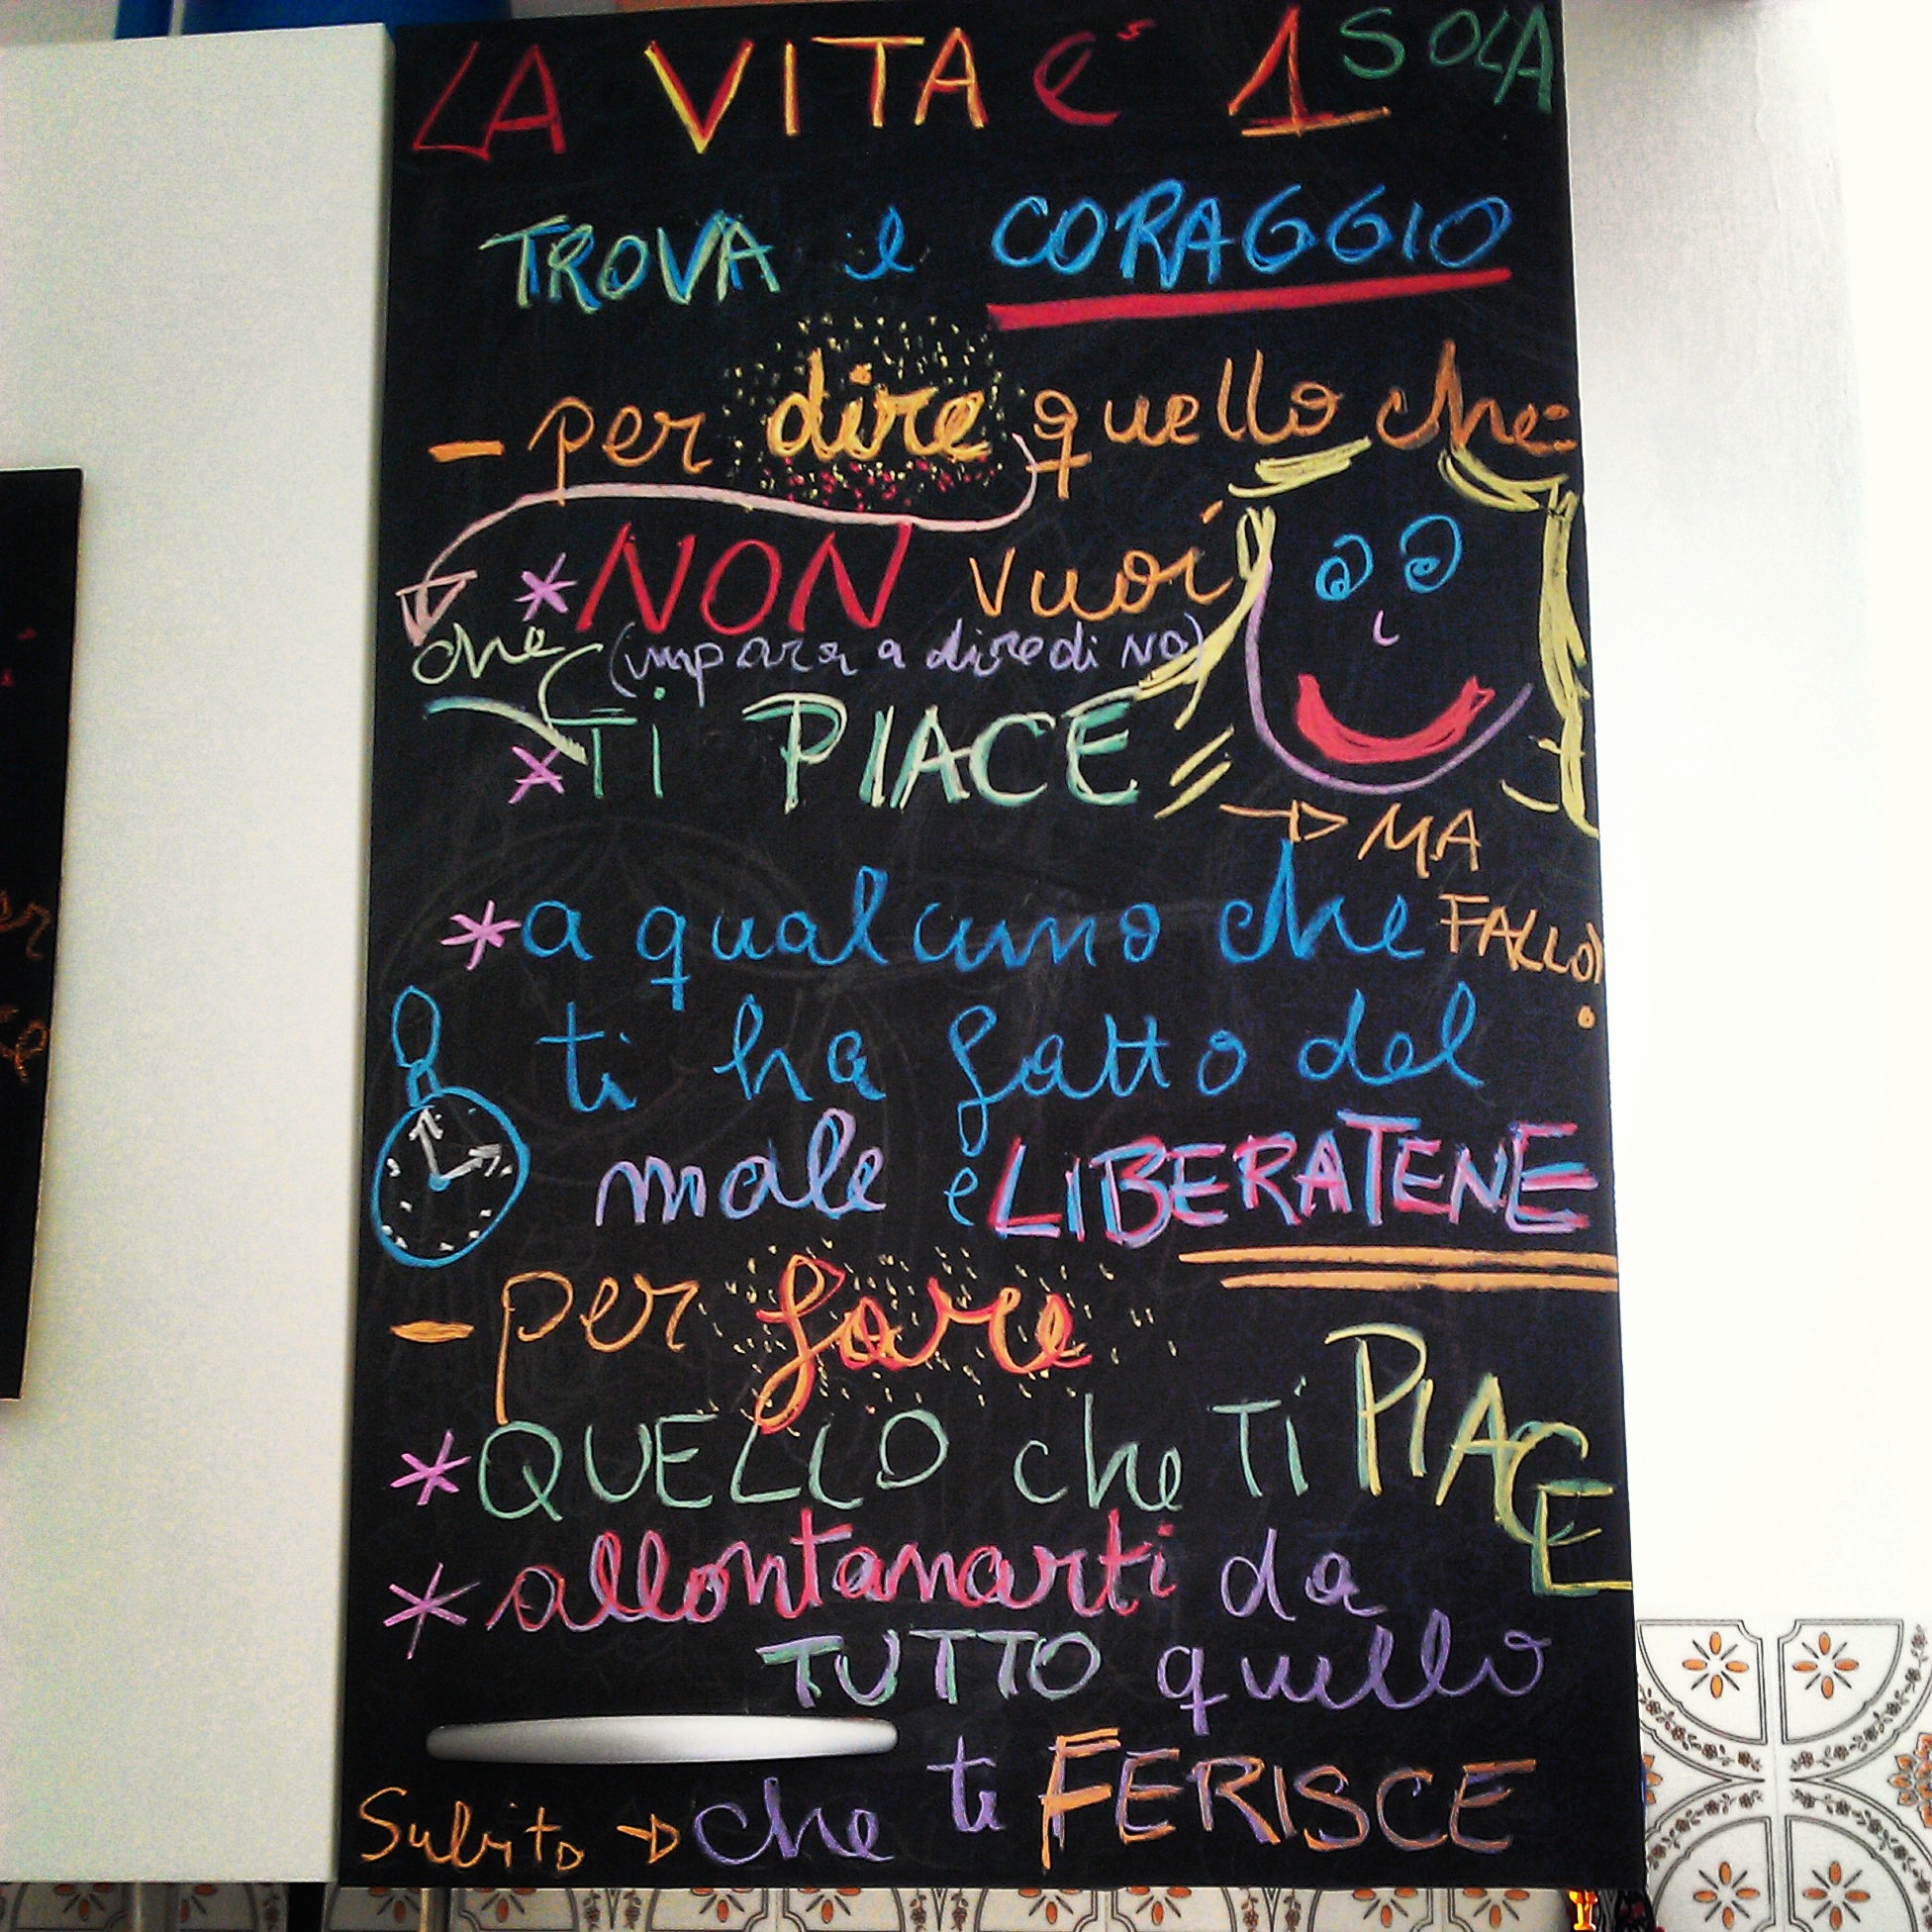 LA VITA è 1 SOLA
TROVA il CORAGGIO
- per dire quello che:
* NON vuoi
che (impara a dire di NO)
* Ti PIACE
→ MA
FALLO!
* a qualcuno che
ti ha fatto del
male e LIBERATENE
- per fare
* QUELLO che Ti PIACE
* allontanarti da
TUTTO quello
che ti FERISCE
Subito →